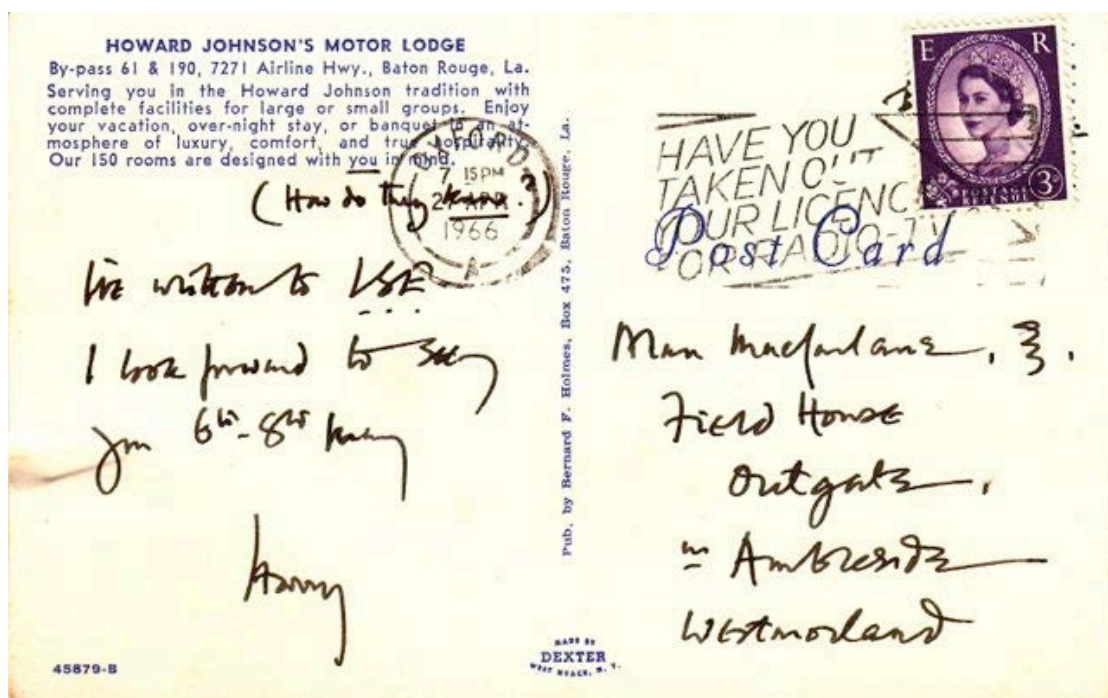 HOWARD JOHNSON'S MOTOR LODGE
By-pass 61 & 190, 7271 Airline Hwy., Baton Rouge, La.
Serving you in the Howard Johnson tradition with
complete facilities for large or small groups. Enjoy
your vacation, over-night stay, or banquet in an at-
mosphere of luxury, comfort, and true hospitality.
Our 150 rooms are designed with you in mind.
(How do they know?)
I've written to LSE
I look forward to seeing
you 6th - 8th May
Harry
45879-B
7 15 PM
APR
1966
A
Pub. by Bernard F. Holmes, Box 475, Baton Rouge, La.
MADE BY
DEXTER
WEST NYACK, N. Y.
E R
POSTAGE
REVENUE
3D
HAVE YOU
TAKEN OUT
YOUR LICENCE
FOR RADIO-TV
Post Card
Alan Macfarlane,
Field House
Outgate,
nr Ambleside
Westmorland